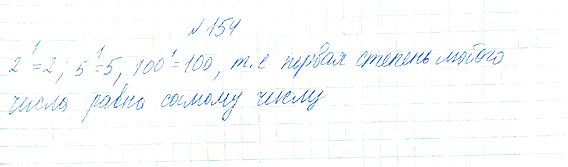 № 154
2¹=2; 5¹=5, 100¹=100, т.е первая степень любого
числа равна самому числу